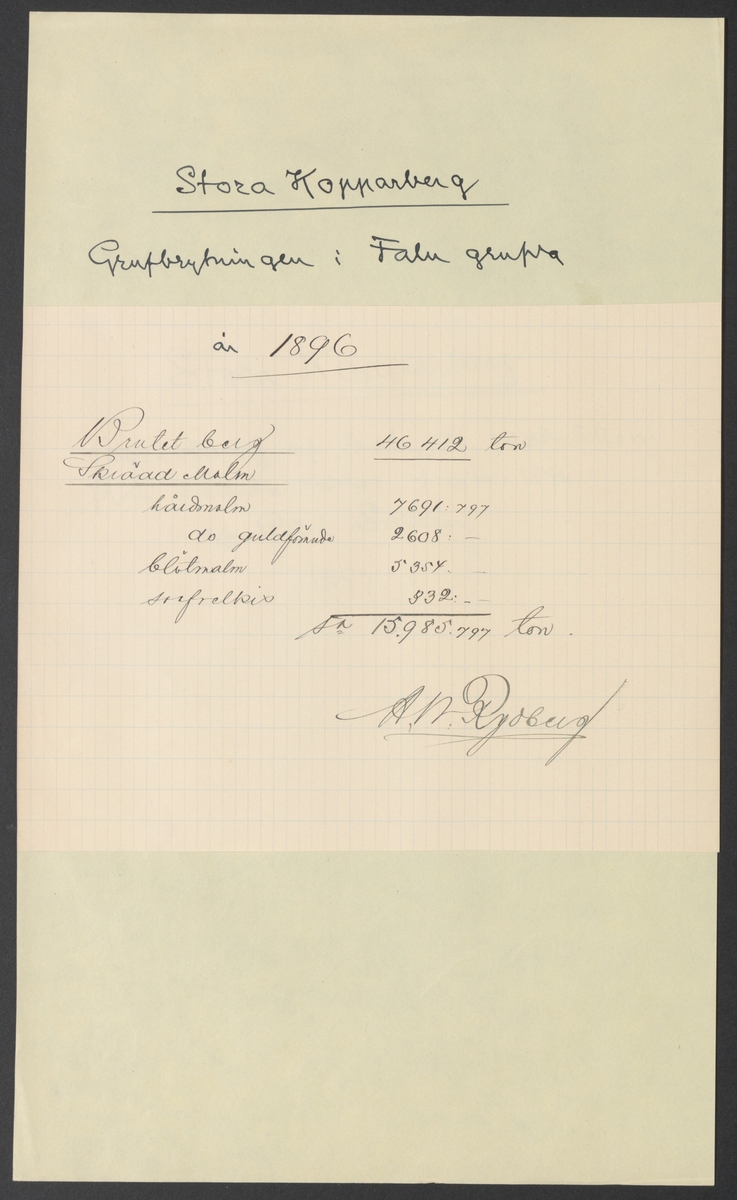 Stora Kopparberg
Grufbrytningen i Falu grufva
år 1896
Brutet berg 46 412 ton
Skrädd Malm
hårdmalm 7691:797
do guldförande 2608:—
blötmalm 5354.—
svafvelkis 332:—
Sa 15.985.797 ton.
A. W. Rydberg